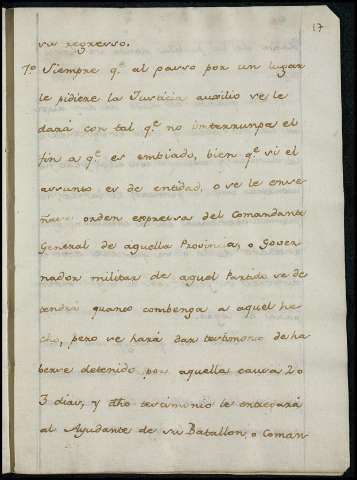 17
su regresso.
7º Siempre q.e al passo por un lugar
le pidiere la Justicia auxilio se le
dará con tal q.e no interrumpa el
fin a q.e es embiado, bien q.e si el
assunto es de entidad, o se le ense-
ñare orden expressa del Comandante
General de aquella Provincia, o Gover-
nador militar de aquel Partido se de-
tendrá quanto combenga a aquel he-
cho, pero se hará dar testimonio de ha-
berse detenido por aquella causa 2 o
3 dias, y dho testimonio le entregará
al Ayudante de su Batallon, o Coman-